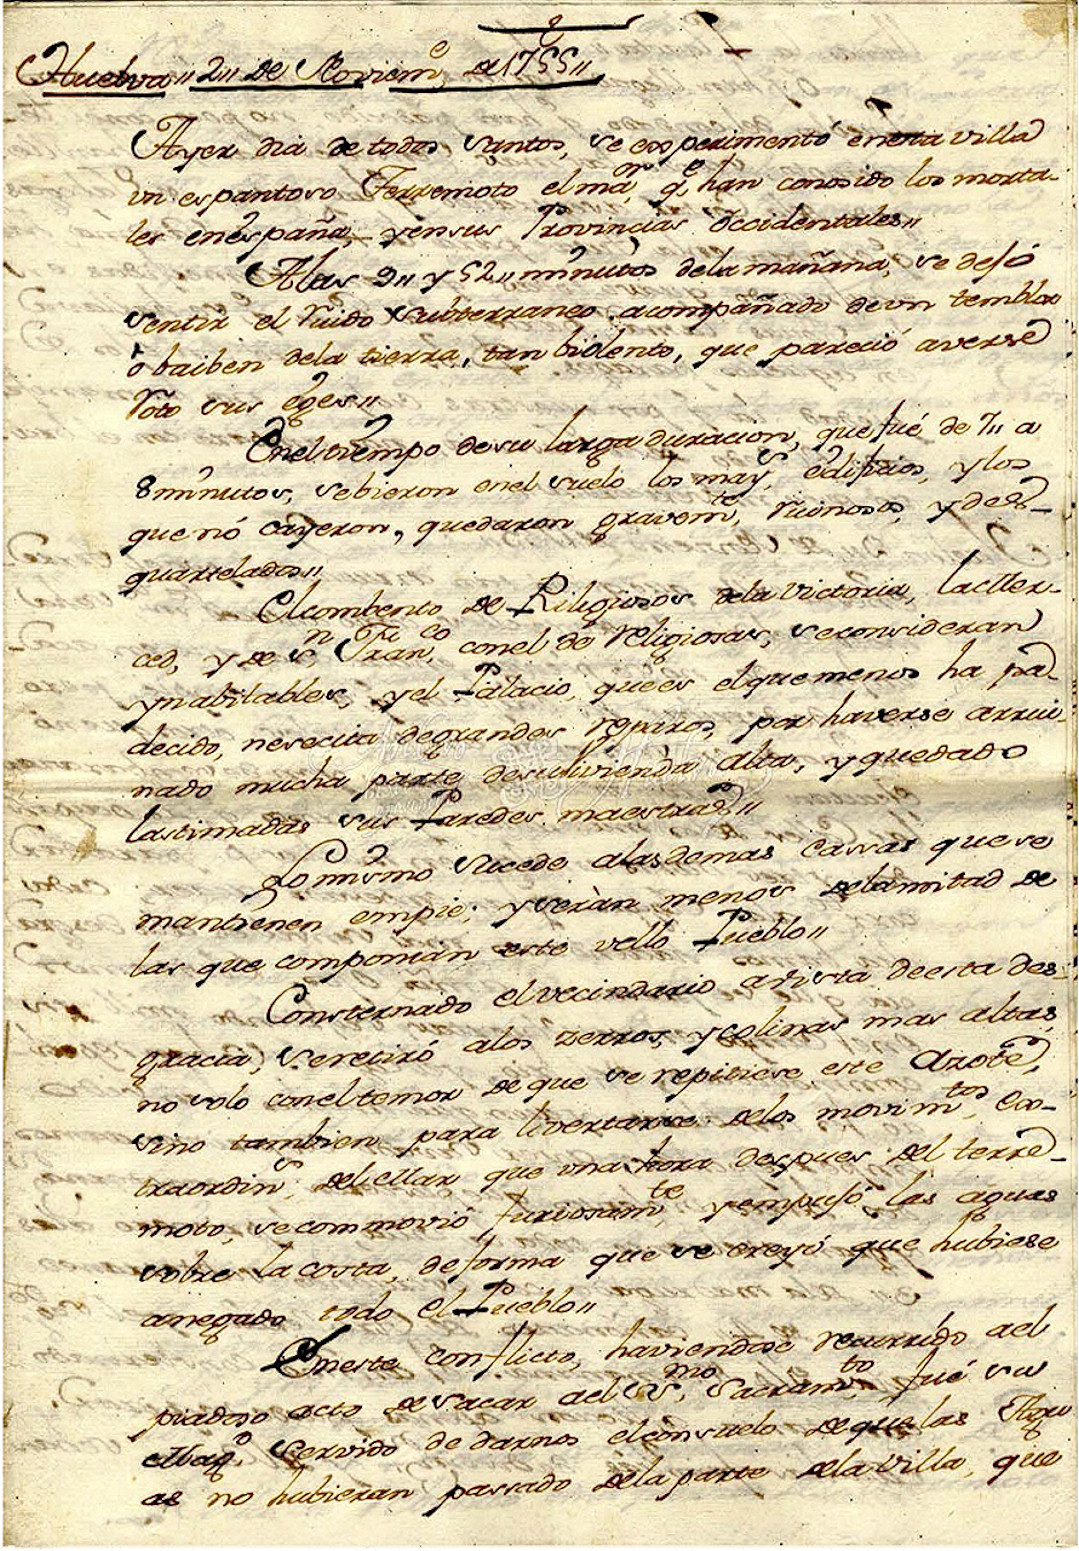 Huelva,, 2,, de Noviem.e de 1755,,
Ayer dia de todos Santos, se experimentó enesta villa
un espantoso Terremoto el ma.or q.e han conosido los morta-
les enespaña, yensus Provincias Occidentales,,
Alas 9,, y 52,, minutos dela mañana, se dejó
sentir el ruido subterraneo acompañado deun temblor
ó baiben dela tierra, tan biolento, que pareció averse
roto sus eges,,
Eneltiempo desu larga duracion, que fué de 7,, a
8 minutos, sebieron enel suelo los may.s edificios, ylos
que nó cayeron, quedaron gravem.te ruinosos, ydes-
quartelados,,
Elcombento de Religiosos dela Victoria, laMer-
ced, y de S.n Fran.co, conel de religiosas, seconsideran
ynabitables, yel Palacio, quees elquemenos ha pa-
decido, nesecita degrandes reparos, por haverse arrui-
nado mucha parte desuvivienda alta, yquedado
lastimadas sus Paredes maestras,,
Lo mismo sucede alasdemas cassas que se
mantienen empie; yserán menos delamitad de
las que componian este vello Pueblo,,
Consternado elvecindario avista deesta des-
gracia, seretiró alos zerros, ycolinas mas altas,
no solo coneltemor de que se repitiese este Azote,
sino tambien para livertarse delos movim.tos ex-
traordin.s delMar, que una hora despues del terre-
moto, secommovió furiosam.te yempujó las aguas
sobre lacosta, deforma que se creyó que hubiese
anegado todo el Pueblo,,
Eneste conflicto, haviendose recurrido ael
piadoso acto de sacar ael S.mo Sacram.to fué su
Mag.d servido de darnos elconsuelo dequelas Agu
as no hubieran passado delaparte delavilla, que